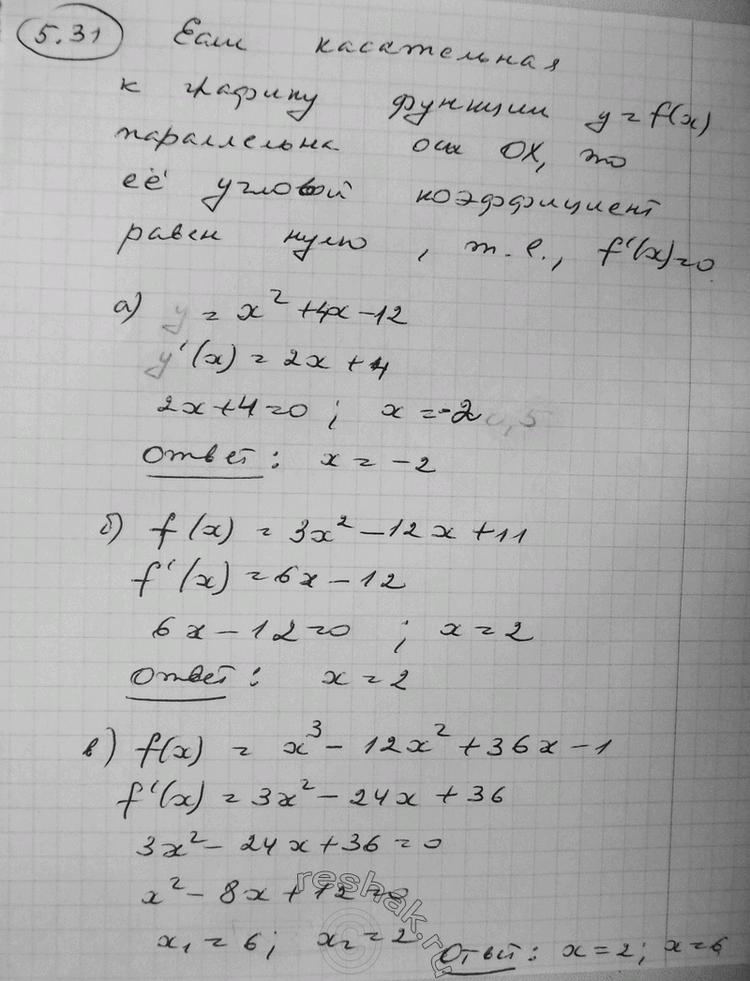 5.31 Если касательная
к графику функции y = f(x)
параллельна оси OX, то
её угловой коэффициент
равен нулю, т.е., f'(x)=0
а) y = x² + 4x - 12
y'(x) = 2x + 4
2x + 4 = 0 ; x = -2
Ответ: x = -2
б) f(x) = 3x² - 12x + 11
f'(x) = 6x - 12
6x - 12 = 0 ; x = 2
Ответ: x = 2
в) f(x) = x³ - 12x² + 36x - 1
f'(x) = 3x² - 24x + 36
3x² - 24x + 36 = 0
x² - 8x + 12 = 0
x₁ = 6; x₂ = 2 Ответ: x = 2; x = 6
reshak.ru